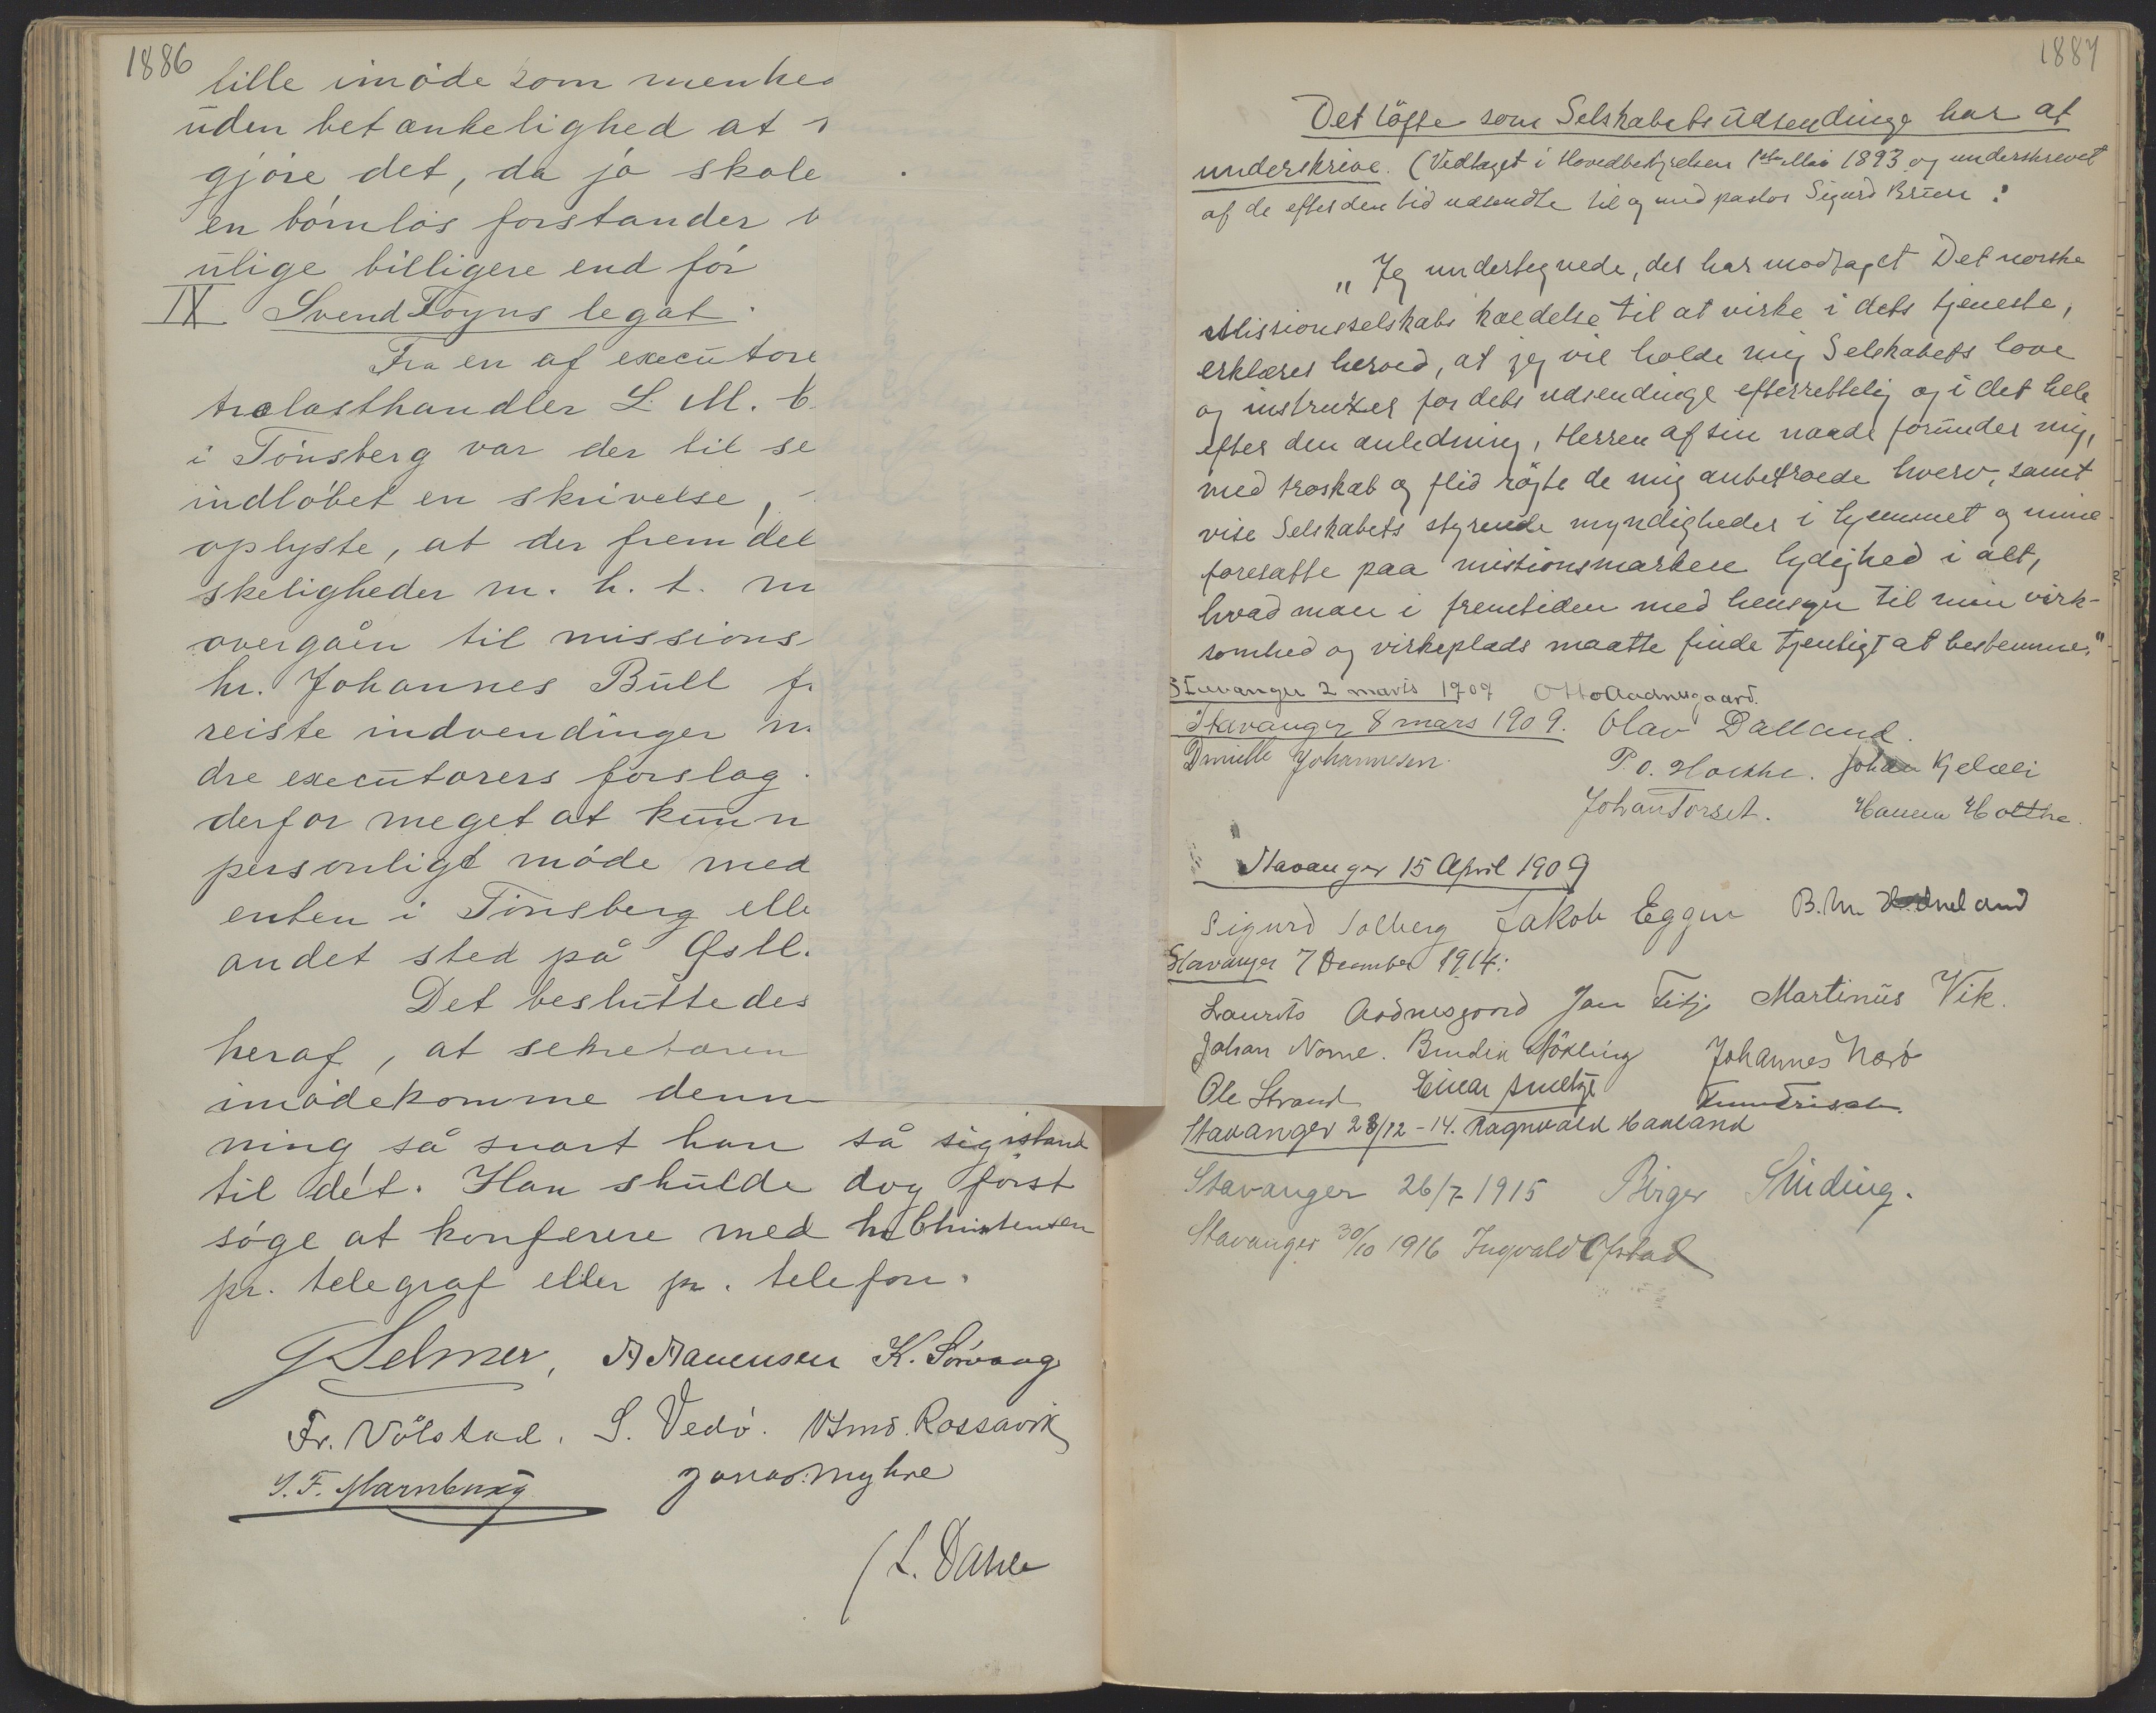 1886
lille imøde som menhed
uden betænkelighed at
gjøre det, da jo skole
en børnløs forstander
ulige billigere end før
IX Svend Foyns legat.
Fra en af executore
trælasthandler L. M.
i Tønsberg var der til se
indløbet en skrivelse,
oplyste, at der fremdel
skeligheder m. h. t. m
overgåen til missions
hr. Johannes Bull f
reiste indvendinger m.
dre executorers forslag.
derfor meget at kunn
personligt møde med
enten i Tønsberg elle
andet sted på Østl.
Det besluttedes
heraf, at sekretæren
imødekomme denn
ning så snart han så sig istand
til det. Han skulde dog først
søge at konferere med hr Christensen
pr. telegraf eller pr. telefon.
G Selmer, A Aanensen K. Sørvang
Fr. Vølstad. S. Vedø. Rossavik
Jonas Myhre
L. Dahle
1887
Det løfte som Selskabets udsendinge har at
underskrive. (Vedtaget i Hovedbestyrelsen 1ste Mai 1893 og underskrevet
af de efter den tid udsendte til og med pastor Sigurd Bruun:
„Jeg undertegnede, der har modtaget Det norske
Missionsselskabs kaldelse til at virke i dets tjeneste,
erklærer herved, at jeg vil holde mig Selskabets love
og instruxer for dets udsendinge efterrettelig og i det hele
efter den anledning, Herren af sin naade forunder mig,
med troskab og flid røgte de mig anbetroede hverv, samt
vise Selskabets styrende myndigheder i hjemmet og mine
foresatte paa missionsmarken lydighed i alt,
hvad man i fremtiden med hensyn til min virk-
somhed og virkeplads maatte finde tjenligt at bestemme."
Stavanger 2 marts 1909 Otto Aadnesgaard.
Stavanger 8 mars 1909. Olav Dalland.
Johannesen. P. O. Holthe. Johan Kjelvei
Johan Torset. Hanna Holthe.
Stavanger 15 April 1909
Sigurd Solberg Jakob Eggen B. M.
Stavanger 7 December 1914:
Laurits Aadnesgaard Jan Titje Martinus Vik.
Johan Nome. Bendik Søkling Johannes Nærø
Ole Strand Einar Smebye
Stavanger 28/12 - 14. Ragnvald Haaland
Stavanger 26/7 1915 Birger Sinding.
Stavanger 30/10 1916 Ingvald Ofstad